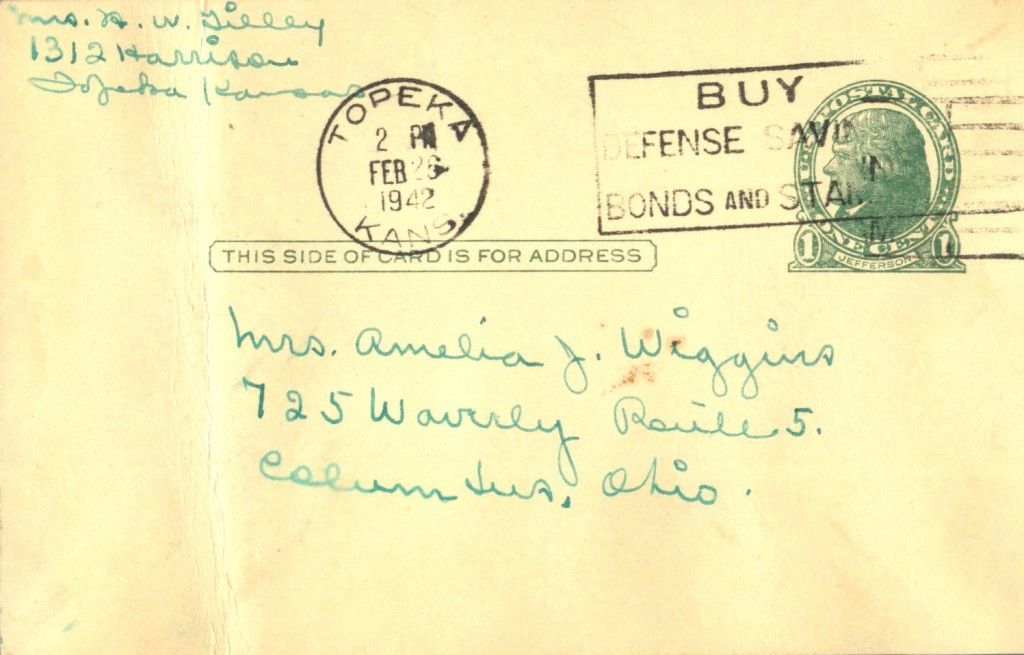 Mrs. H. W. Tilley
1312 Harrison
Topeka Kansas
TOPEKA
2 PM
FEB 26
1942
KANS.
BUY
DEFENSE SAVIN
BONDS AND STAM
U.S. POSTAL CARD
ONE CENT
1 1
JEFFERSON
THIS SIDE OF CARD IS FOR ADDRESS
Mrs. Amelia J. Wiggins
725 Waverly Route 5.
Columbus, Ohio.